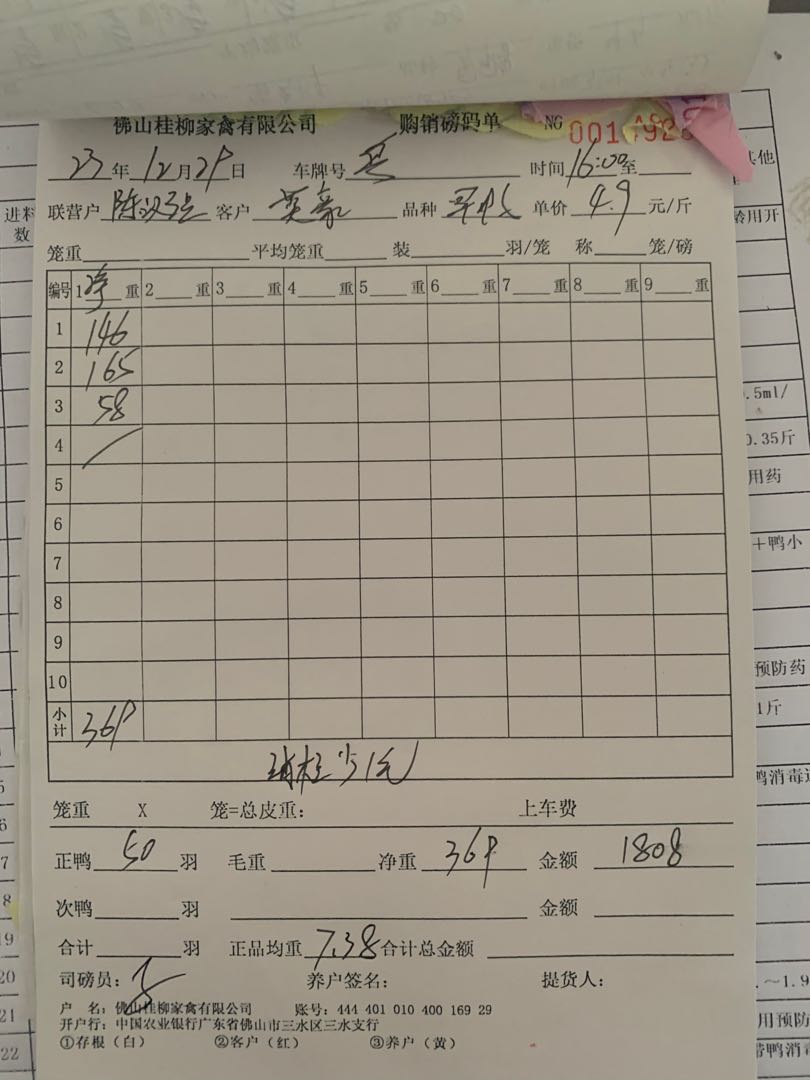 佛山桂柳家禽有限公司 购销磅码单 NO
23年12月29日 车牌号 时间16:00至
联营户 客户 英豪 品种 单价4.9元/斤
笼重 平均笼重 装 羽/笼 称 笼/磅
编号 1净重 2 重 3 重 4 重 5 重 6 重 7 重 8 重 9 重
1 146
2 165
3 58
4
5
6
7
8
9
10
小计 369
少1元
笼重 X 笼=总皮重: 上车费
正鸭 50 羽 毛重 净重 369 金额 1808
次鸭 羽 金额
合计 羽 正品均重 7.38 合计总金额
司磅员: 养户签名: 提货人:
户 名: 佛山桂柳家禽有限公司 账号: 444 401 010 400 169 29
开户行: 中国农业银行广东省佛山市三水区三水支行
①存根(白) ②客户(红) ③养户(黄)
进料数
其他
龄用开
.5ml/
0.35斤
用药
+鸭小
预防药
1斤
鸭消毒
.~1.9
用预防
带鸭消毒
19
20
21
22